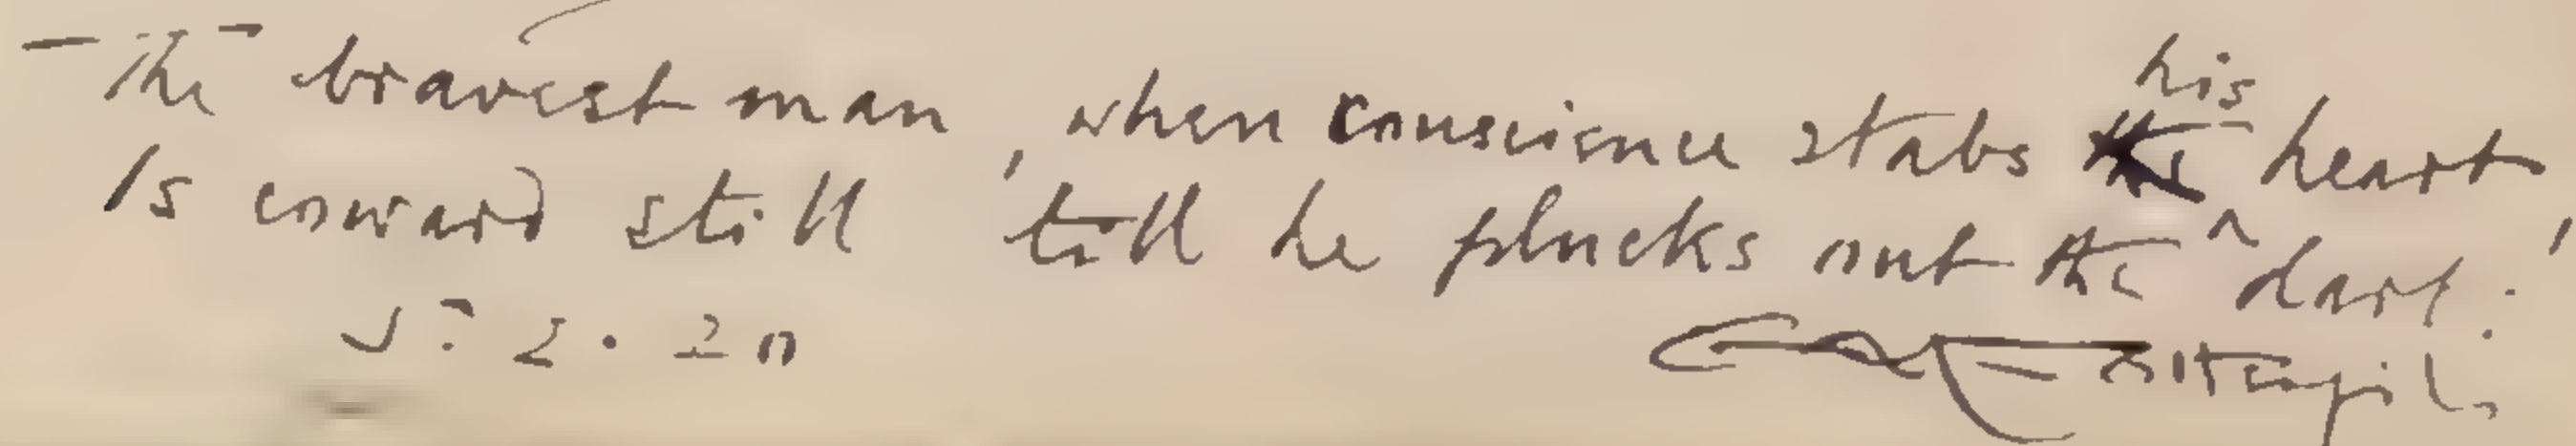 — The bravest man, when conscience stabs his heart,
Is coward still till he plucks out the dart: